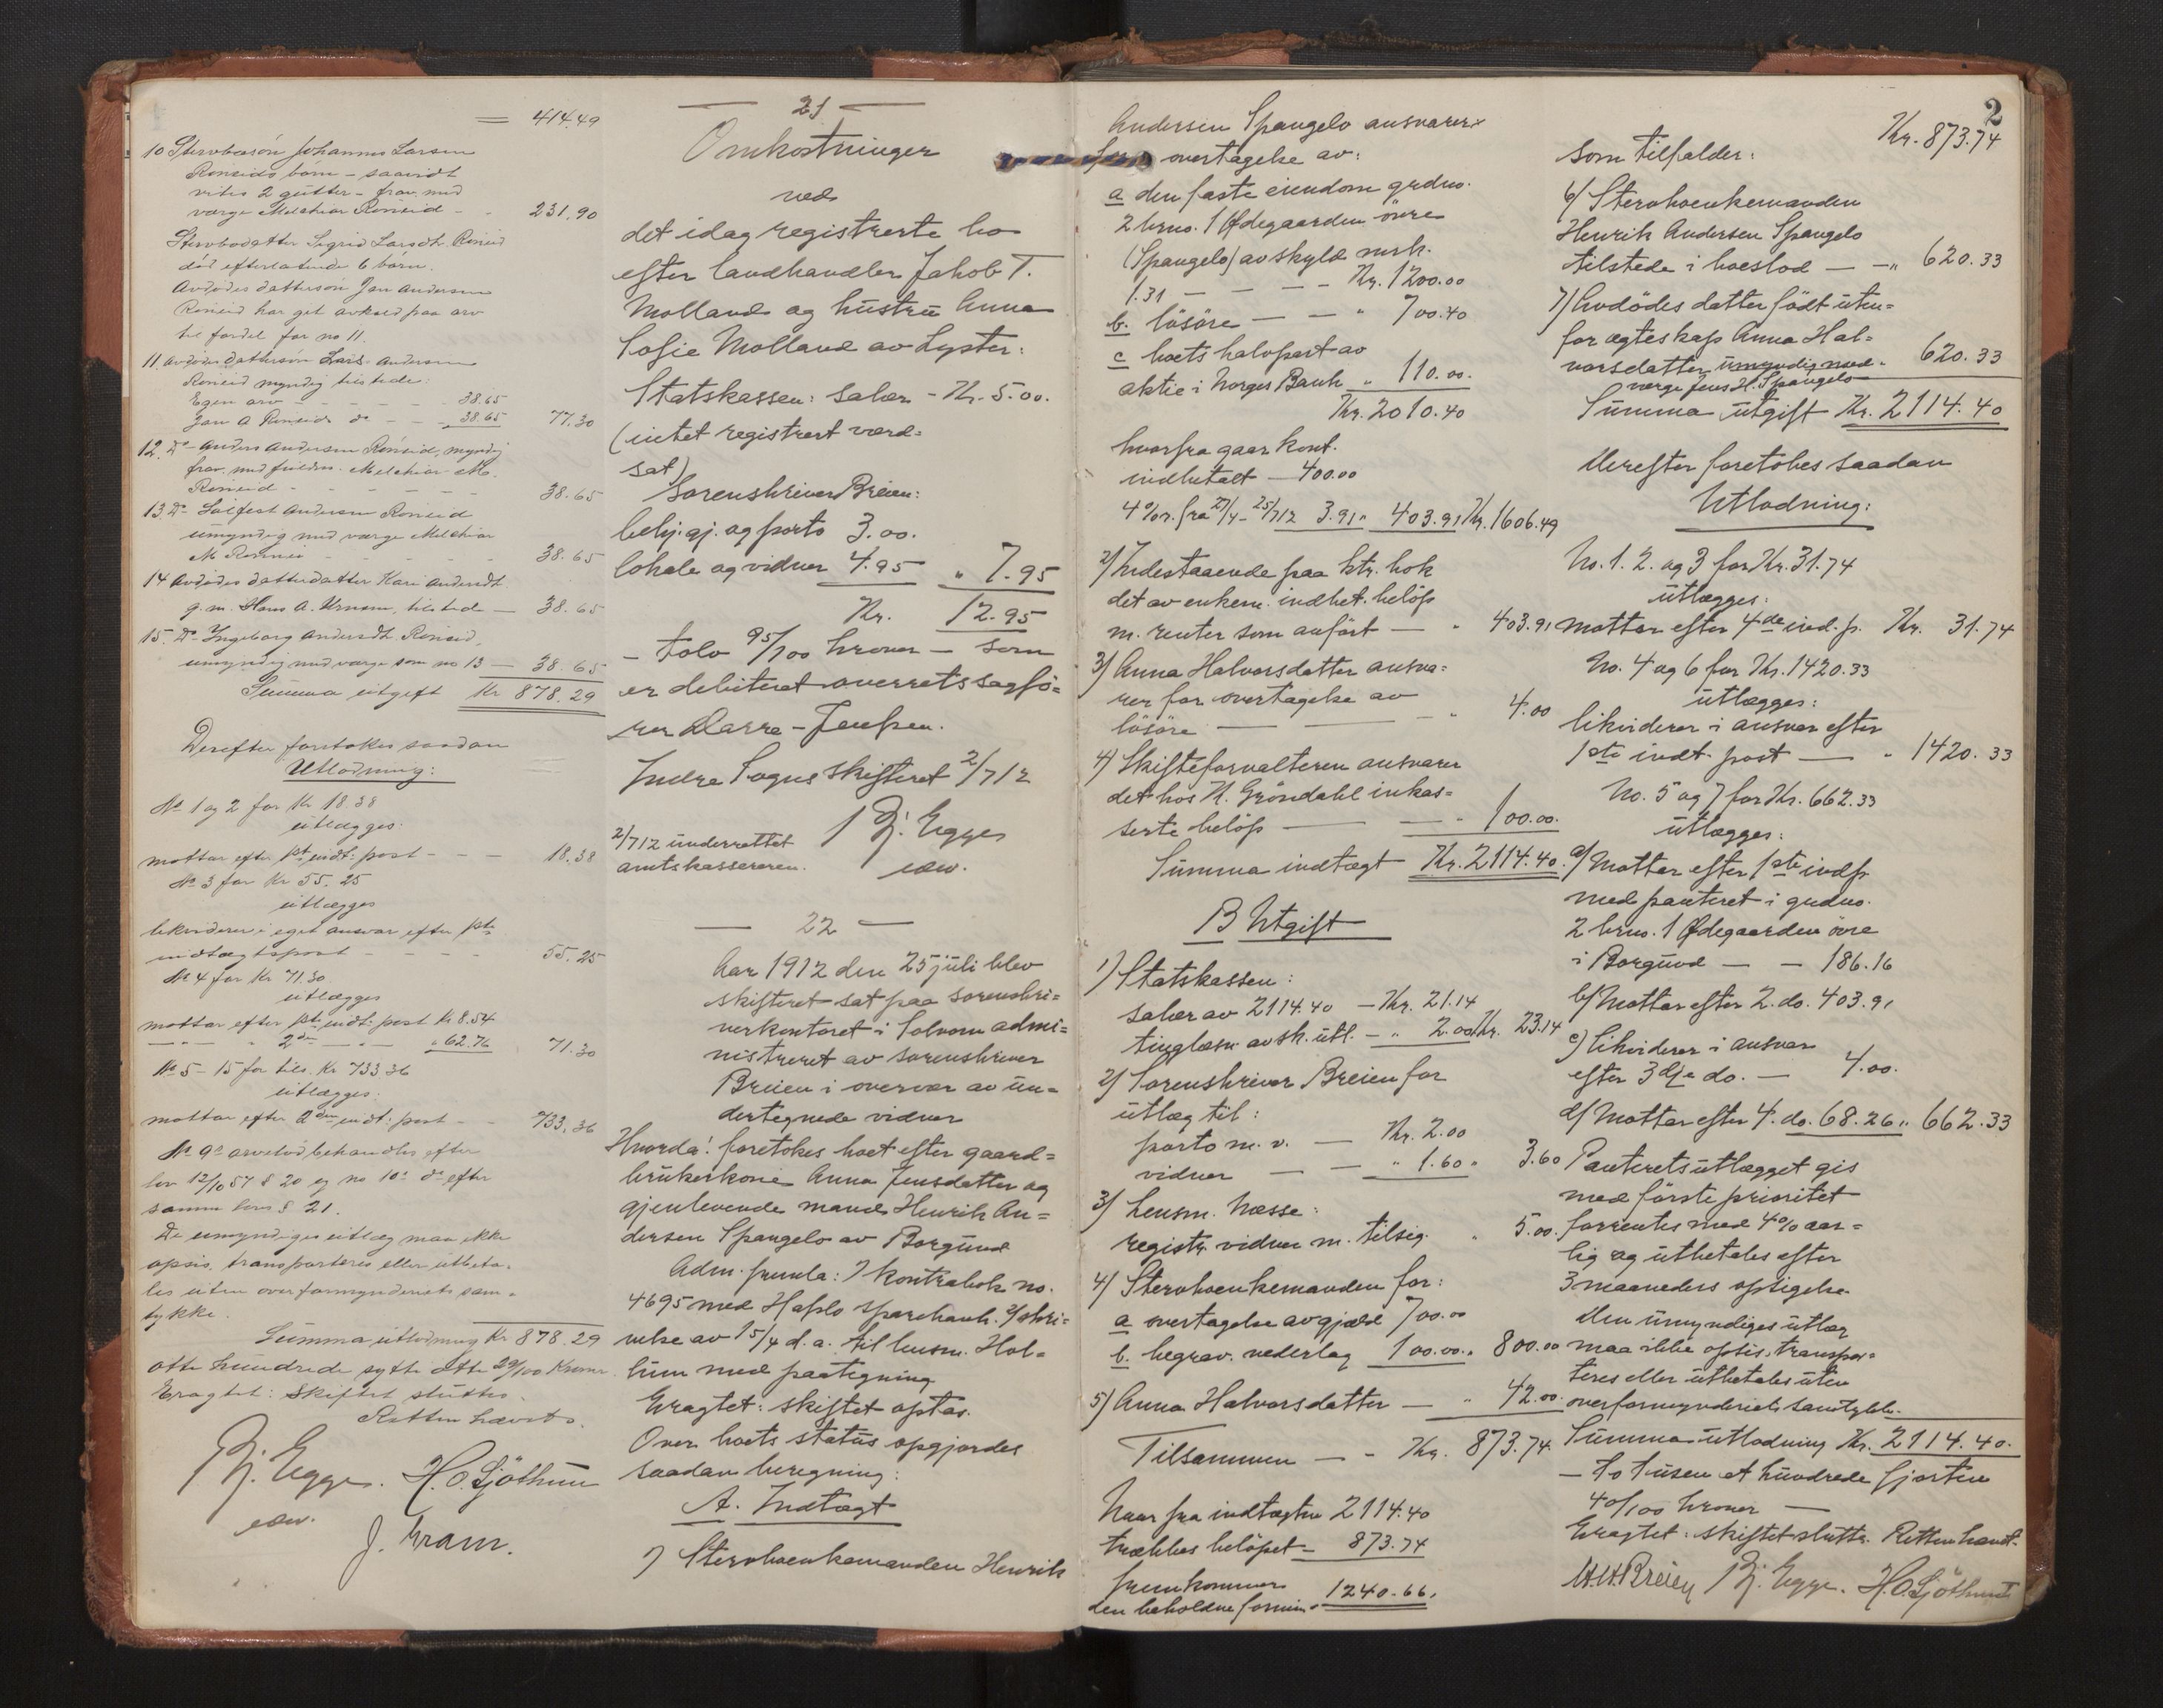 = 414.49
10 Stervbosøn Johannes Larsen
Rensids børn - saavidt
vites 2 gutter - frav. med
værge Melchior Rinsid - - 231.90
Stervbodatter Sigrid Larsdtr. Rinsid
død efterlatende 6 børn.
Avdødes dattersøn Jan Andersen
Rinsid har git avkald paa arv
til fordel for no 11.
11 avdødes dattersøn Lars Andersen
Rinsid myndig tilstede:
Egen arv - - - - 38.65
Jan A Rinsids do - - 38.65 77.30
12. Do Anders Andersen Rinsid, myndig
frav. med fuldm. Melchior M.
Rinsid - - - - - - 38.65
13. Do Salfest Andersen Rinsid
umyndig med værge Melchior
M Rinsid - - - - - 38.65
14 avdødes datterdatter Kari Andersdt.
g.m. Hans A. Urnem, tilstede — 38.65
15. Do Ingeborg Andersdt. Rinsid,
umyndig med værge som no 13 — 38.65
Summa utgift Kr 878.29
Derefter foretokes saadan
Utlodning:
No 1 og 2 for Kr 18.38
utlægges:
mottar efter 1ste indt: post - - — 18.38
No 3 for Kr 55.25
utlægges
likviderer i eget ansvar efter 1ste
indtægtspost - - - - 55.25
No 4 for Kr 71.30
utlægges
mottar efter 1ste indt: post Kr 8.54
—"— " 2den —"— " 62.76 71.30
No 5 - 15 for tils. Kr 733 36
utlægges:
mottar efter 2den indt: post - - 733.36
No 9s arvelod behandles efter
lov 12/10 57 § 20 og no 10s do efter
samme lovs § 21.
De umyndiges utlæg maa ikke
opsis, transporteres eller utbeta-
les uten overformynderiets sam-
tykke.
Summa utlodning Kr 878.29
otte hundrede sytti otte 29/100 Kroner.
Eragtet: Skiftet sluttes.
Retten hævet.
Bj. Egge. H.O. Sjøthun
edsv.
J. Fram.
— 21 —
Omkostninger
ved
det idag registrerte bo
efter landhandler Jakob T.
Molland og hustru Anna
Sofie Molland av Lyster:
Statskassen: salær - Kr. 5.00.
(intet registrert værd-
sat)
Sorenskriver Breien:
bekj. gj. og porto 3.00.
lokale og vidner 4.95 " 7.95
Kr. 12.95
— tolv 95/100 kroner — som
er debiteret overretssagfø-
rer Darre-Jenssen.
Indre Sogns skifteret 2/7 12
Bj. Egge
edsv.
2/7 12 underrettet
amtskassereren.
— 22 —
Aar 1912 den 25 juli blev
skifteret sat paa sorenskri-
verkontoret i Solvorn admi-
nistreret av sorenskriver
Breien i overvær av un-
dertegnede vidner
Hvorda! foretokes boet efter gaard-
brukerkone Anna Jensdatter og
gjenlevende mand Henrik An-
dersen Spangelo av Borgund
Adm. fremla: 1 kontrabok no.
4695 med Hafslo Sparebank. 2/ skri-
velse av 15/4 d.a. til lensm. Hol-
lum med paategning.
Eragtet: skiftet optas.
Over boets status opgjordes
saadan beregning:
A. Indtægt
1) Stervboenkemanden Henrik
Andersen Spangelo ansvarer
for overtagelse av:
a den faste eiendom grdno.
2 brno. 1 Ødegaarden øvre
(Spangelo) av skyld mrk.
1.31 — — — - Kr. 1200.00
b. løsøre — — — " 700.40
c boets halvpart av
aktie i Norges Bank " 110.00.
Kr. 2010.40
hvorfra gaar kont.
indbetalt — 400.00
4% r. fra 27/4 - 25/7 12 3.91 " 403.91 Kr. 1606.49
2) Indestaaende paa ktr. bok
det av enkem. indbet. beløp
m. renter som anført — " 403.91
3) Anna Halvorsdatter ansva-
rer for overtagelse av
løsøre — — — " 4.00
4) Skifteforvalteren ansvarer
det hos N. Grøndahl inkas-
serte beløp — — " 100.00.
Summa indtægt Kr. 2114.40.
B Utgift
1) Statskassen:
salær av 2114.40 — Kr. 21.14
tinglæsn. av sk. utl. — " 2.00 Kr. 23.14
2) Sorenskriver Breien for
utlæg til:
porto m.v. — Kr. 2.00
vidner — — " 1.60 " 3.60
3) Lensm. Næsse:
registr. vidner m. tilsig. " 5.00.
4) Stervboenkemanden for:
a overtagelse av gjæld 700.00
b. begrav. vederlag 100.00. " 800.00
5) Anna Halvorsdatter — " 42.00.
Tilsammen — - Kr. 873.74.
Naar fra indtægten 2114.40
trækkes beløpet - 873.74
fremkommer
den beholdne formue - 1240.66.
2
Kr. 873.74
som tilfalder:
6) Stervboenkemanden
Henrik Andersen Spangelo
tilstede i boeslod — —" 620.33
7) Avdødes datter født uten-
for egteskap Anna Hal-
vorsdatter umyndig med - 620.33
værge Jens H. Spangelo
Summa utgift Kr. 2114.40
Derefter foretokes saadan
Utlodning:
No. 1. 2. og 3 for Kr. 31.74
utlægges:
mottar efter 4de ind. p. Kr. 31.74
No. 4 og 6 for Kr. 1420.33
utlægges:
likviderer i ansvar efter
1ste indt. post — " 1420.33
No. 5 og 7 for Kr. 662.33
utlægges:
a) Mottar efter 1ste indp
med panteret i grdno.
2 brno. 1 Ødegaarden øvre
i Borgund — — 186.16
b) Mottar efter 2. do. 403.91
c) likviderer i ansvar
efter 3dje do. — 4.00.
d) Mottar efter 4. do. 68.26 " 662.33
Panteretsutlægget gis
med første prioritet
forrentes med 4% aar-
lig og utbetales efter
3 maaneders opsigelse
Den umyndiges utlæg
maa ikke opsis, transpor-
teres eller utbetales uten
overformynderiets samtykke.
Summa utlodning Kr. 2114.40.
— to tusen et hundrede fjorten
40/100 kroner —
Eragtet: skiftet slutter. Retten hævet.
Breien Bj. Egge. H.O. Sjøthun